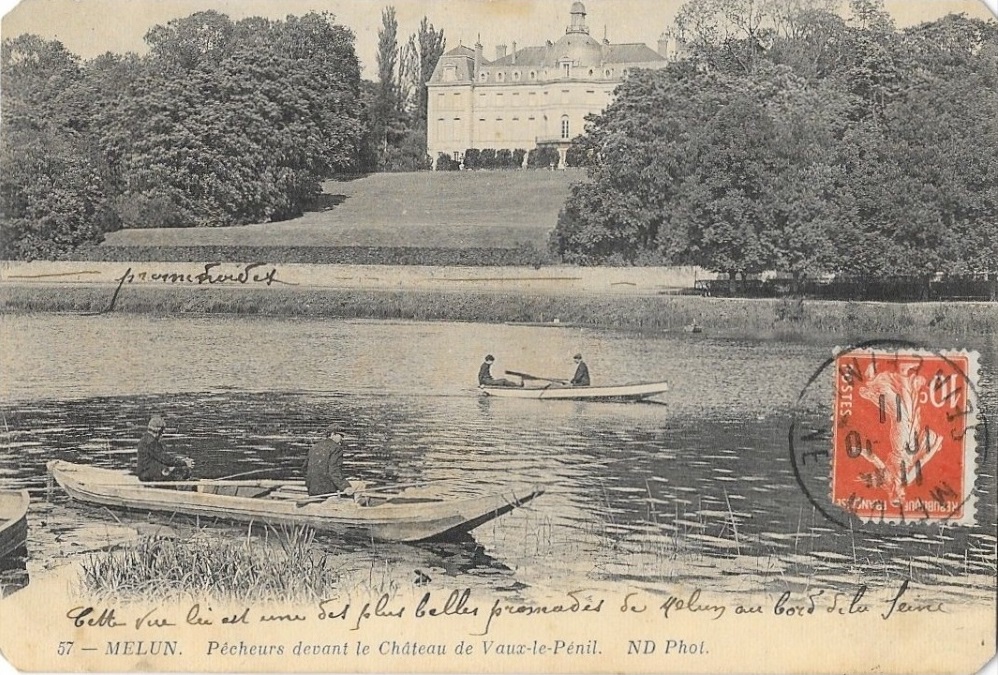 promenades
10c
POSTES
REPUBLIQUE FRANÇAISE
MELUN
11
10
11
SEINE ET M
NE
Cette vue ici est une des plus belles promades de Melun au bord de la Seine
57 — MELUN. Pêcheurs devant le Château de Vaux-le-Pénil. ND Phot.